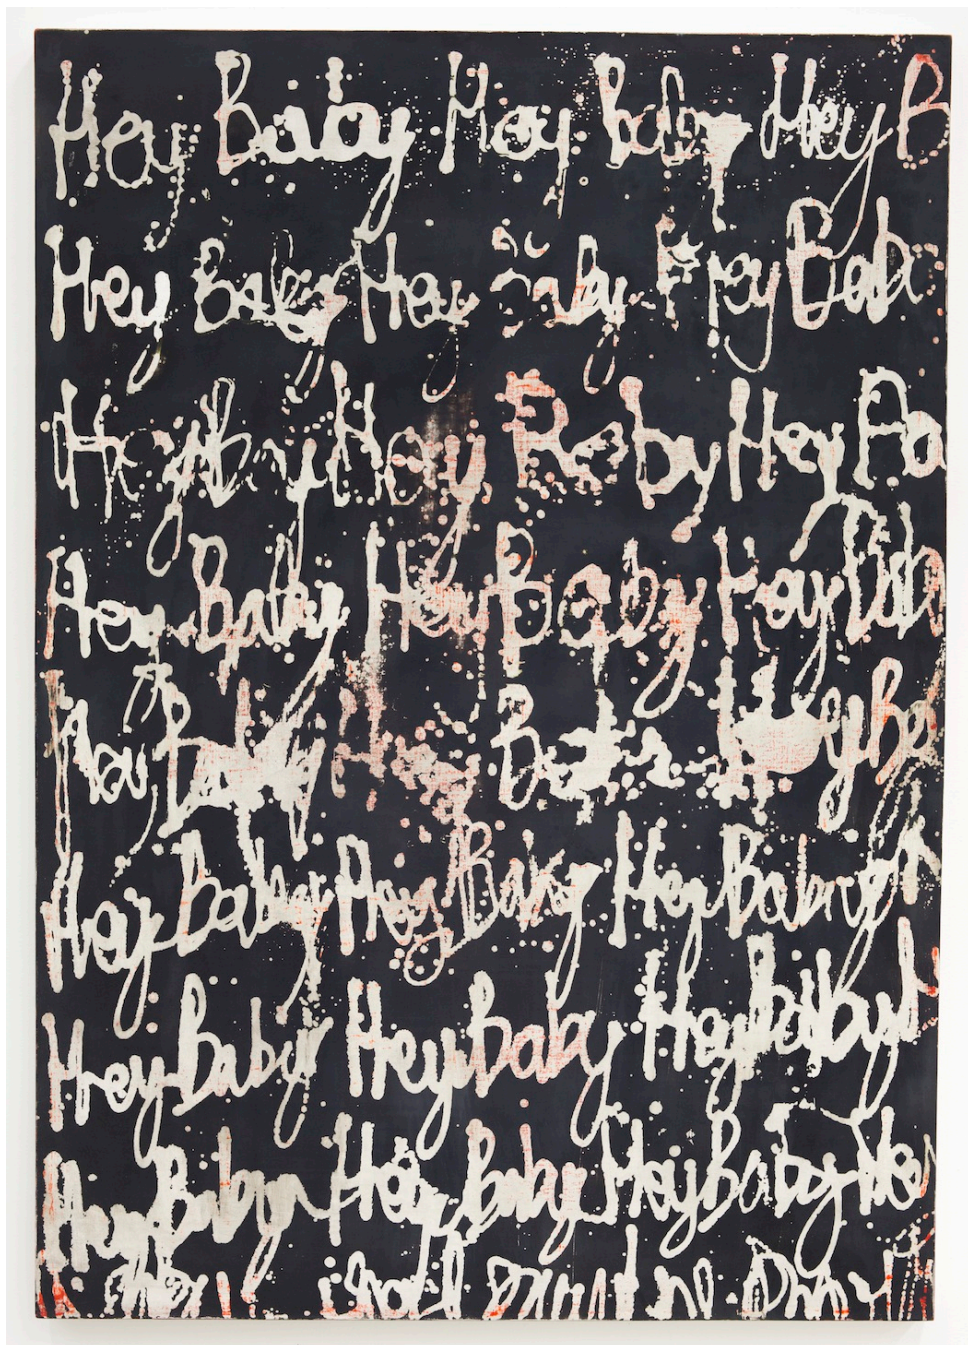 Hey Baby Hey Baby Hey B
Hey Baby Hey Baby Hey Bab
Hey Baby Hey Baby Hey Ba
Hey Baby Hey Baby Hey Bab
Hey Baby Hey Bab Hey Ba
Hey Baby Hey Baby Hey Baby
Hey Baby Hey Baby Hey baby
Hey Baby Hey Baby Hey Baby Hey